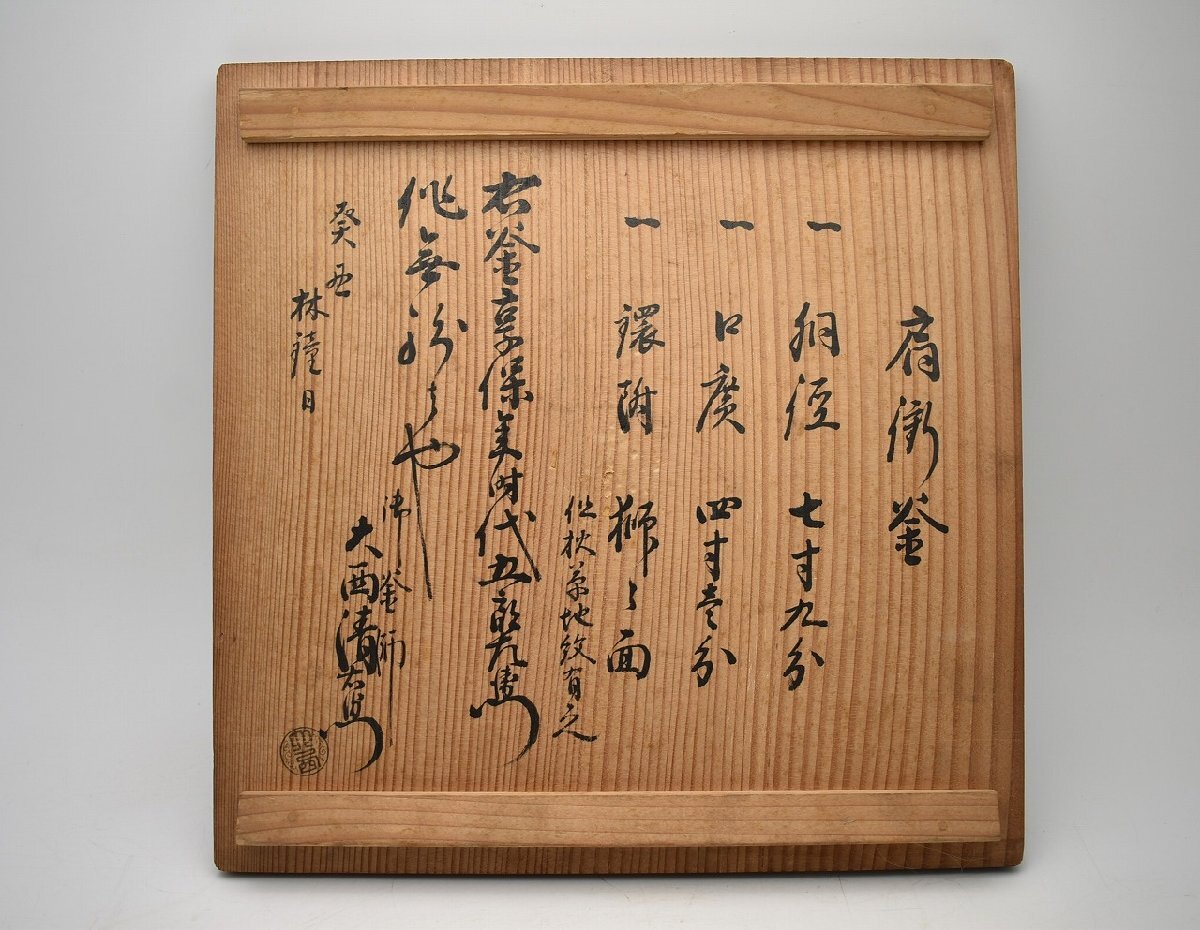 肩衝釜
一 胴径 七寸九分
一 口廣 四寸壱分
一 環附 獅ゝ面
但秋草地紋有之
右釜享保年時代五郎左衛門
作無紛もの也
癸丑
林鐘日
御釜師
大西清右衛門